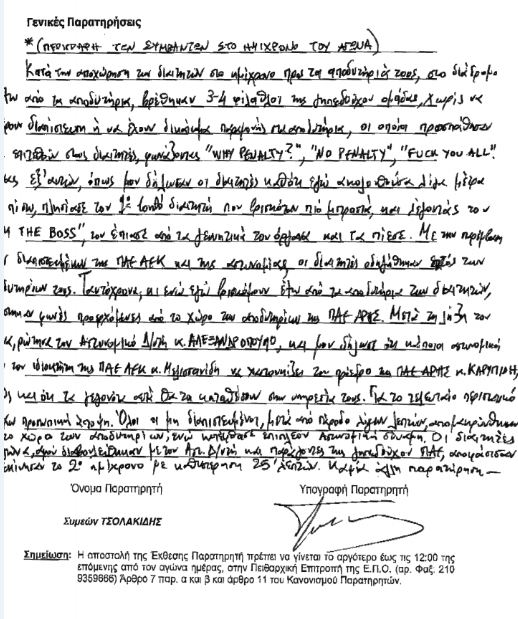 Γενικές Παρατηρήσεις
*(ΠΕΡΙΓΡΑΦΗ ΤΩΝ ΣΥΜΒΑΝΤΩΝ ΣΤΟ ΗΜΙΧΡΟΝΟ ΤΟΥ ΑΓΩΝΑ)
Κατά την αποχώρηση των διαιτητών στο ημίχρονο προς τα αποδυτήριά τους, στο διάδρομο
έξω από τα αποδυτήρια, βρέθηκαν 3-4 φίλαθλοι της γηπεδούχου ομάδας, χωρίς να
έχουν διαπίστευση ή να έχουν δικαίωμα παραμονής στα αποδυτήρια, οι οποίοι προσπάθησαν
επιτεθούν στους διαιτητές, φωνάζοντας "WHY PENALTY?", "NO PENALTY", "FUCK YOU ALL".
ας εξ'αυτών, όπως μου δήλωσαν οι διαιτητές καθότι εγώ ακολουθούσα λίγα μέτρα
πίσω, πλησίασε τον 1ο βοηθό διαιτητή που βρισκόταν πιο μπροστά, και λέγοντάς του
THE BOSS", τον έπιασε από τα γεννητικά του όργανα και τα πίεσε. Με την παρέμβαση
διαπιστευμένων της ΠΑΕ ΑΕΚ και της αστυνομίας, οι διαιτητές οδηγήθηκαν εντός των
δυτηρίων τους. Ταυτόχρονα, κι ενώ εγώ βρισκόμουν έξω από τα αποδυτήρια των διαιτητών,
φωνές προερχόμενες από το χώρο των αποδυτηρίων της ΠΑΕ ΑΡΗΣ. Μετά τη λήξη του
ρώτησα τον Αστυνομικό Δ/ντή κ. ΑΛΕΞΑΝΔΡΟΠΟΥΛΟ, και μου δήλωσε ότι κάποιοι αστυνομικοί
τον ιδιοκτήτη της ΠΑΕ ΑΕΚ κ. Μελισσανίδη να χαστουκίζει τον πρόεδρο της ΠΑΕ ΑΡΗΣ κ. ΚΑΡΥΠΙΔΗ,
και ότι το γεγονός αυτό θα το καταθέσουν στην υπηρεσία τους. Για το τελευταίο περιστατικό
προσωπική άποψη. Όλοι οι μη διαπιστευμένοι, μετά από πάροδο λίγων λεπτών, απομακρύνθηκαν
το χώρο των αποδυτηρίων, ενώ κατέφθασε επιπλέον αστυνομική δύναμη. Οι διαιτητές
αφού διαβουλεύθηκαν με τον Αστ. Δ/ντή και παράγοντες της γηπεδούχου ΠΑΕ, αποφάσισαν
το 2ο ημίχρονο με καθυστέρηση 25 λεπτών. Καμία άλλη παρατήρηση —
Όνομα Παρατηρητή
Υπογραφή Παρατηρητή
Συμεών ΤΣΟΛΑΚΙΔΗΣ
Σημείωση: Η αποστολή της Έκθεσης Παρατηρητή πρέπει να γίνεται το αργότερο έως τις 12:00 της
επόμενης από τον αγώνα ημέρας, στην Πειθαρχική Επιτροπή της Ε.Π.Ο. (αρ. Φαξ. 210
9359666) Άρθρο 7 παρ. α και β και άρθρο 11 του Κανονισμού Παρατηρητών.